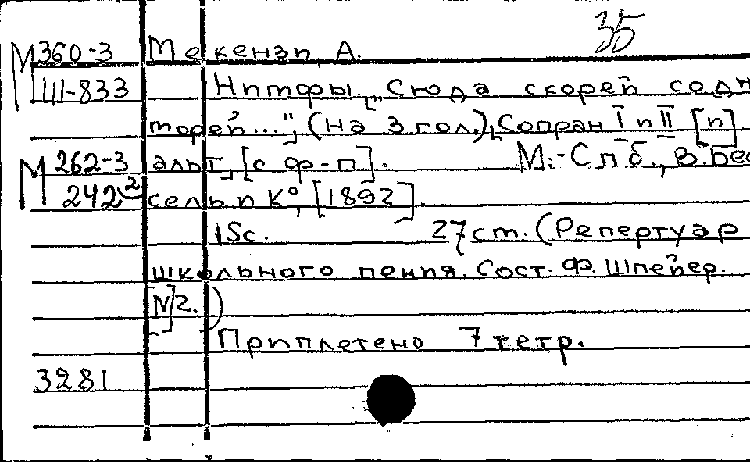 35
М 360-3 Мекензи, А.
Ш-833 Нимфы „Сюда скорей седн
торей...", (На 3 гол.), Сопран I и II [и]
М 262-3 альт, [с ф-п]. М.-Спб., В. Бес
242² сель и К°, [1892].
15с. 27 ст. (Репертуар
школьного пения. Сост. Ф. Шпейер.
№2.)
Приплетено 7 тетр.
3281